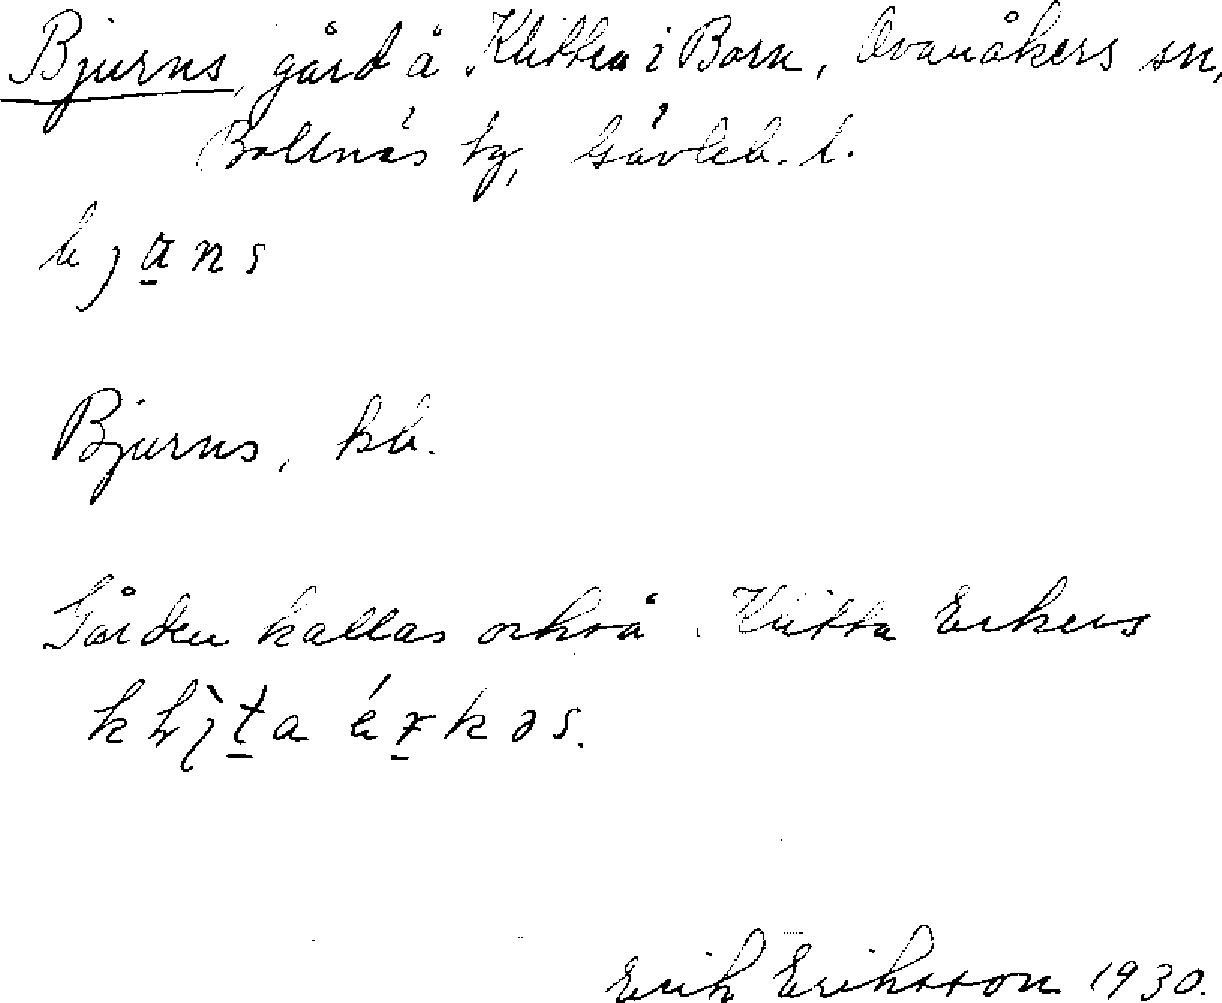 Bjurns, gård å Klitten i Born, Ovanåkers sn,
Bollnäs tg, Gävleb. l.
Bjurns, kb.
Gården kallas också Klitta Erkers
Erik Eriksson 1930.